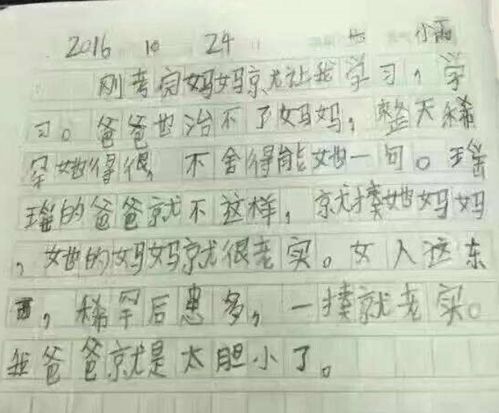 2016 10 24 小雨
刚考完妈妈就让我学习，学
习。爸爸也治不了妈妈，整天稀
罕她得很，不舍得能她一句。瑶
瑶的爸爸就不这样，就揍她妈妈
，她的妈妈就很老实。女人这东
西，稀罕后患多，一揍就老实。
我爸爸就是太胆小了。